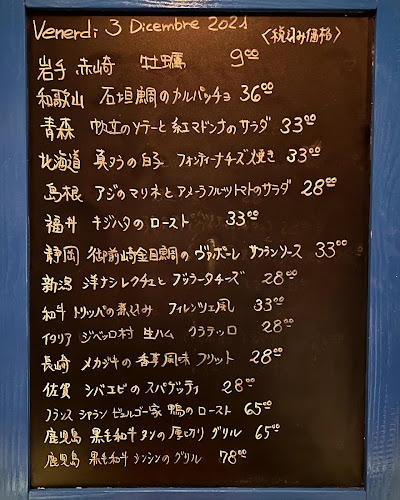 Venerdi 3 Dicembre 2021
〈税込み価格〉
岩手 赤崎 牡蠣 9⁰⁰
和歌山 石垣鯛のカルパッチョ 36⁰⁰
青森 帆立のソテーと紅マドンナのサラダ 33⁰⁰
北海道 真タラの白子 フォンティーナチーズ焼き 33⁰⁰
島根 アジのマリネとアメーラフルーツトマトのサラダ 28⁰⁰
福井 キジハタのロースト 33⁰⁰
静岡 御前崎金目鯛のヴァポーレ サフランソース 33⁰⁰
新潟 洋ナシ レクチェとブッラータチーズ 28⁰⁰
和牛 トリッパの煮込み フィレンツェ風 33⁰⁰
イタリア ジベッロ村 生ハム クラテッロ 28⁰⁰
長崎 メカジキの香草風味 フリット 28⁰⁰
佐賀 シバエビのスパゲッティ 28⁰⁰
フランス シャラン ビュルゴー家 鴨のロースト 65⁰⁰
鹿児島 黒毛和牛タンの厚切りグリル 65⁰⁰
鹿児島 黒毛和牛 シンシンのグリル 78⁰⁰